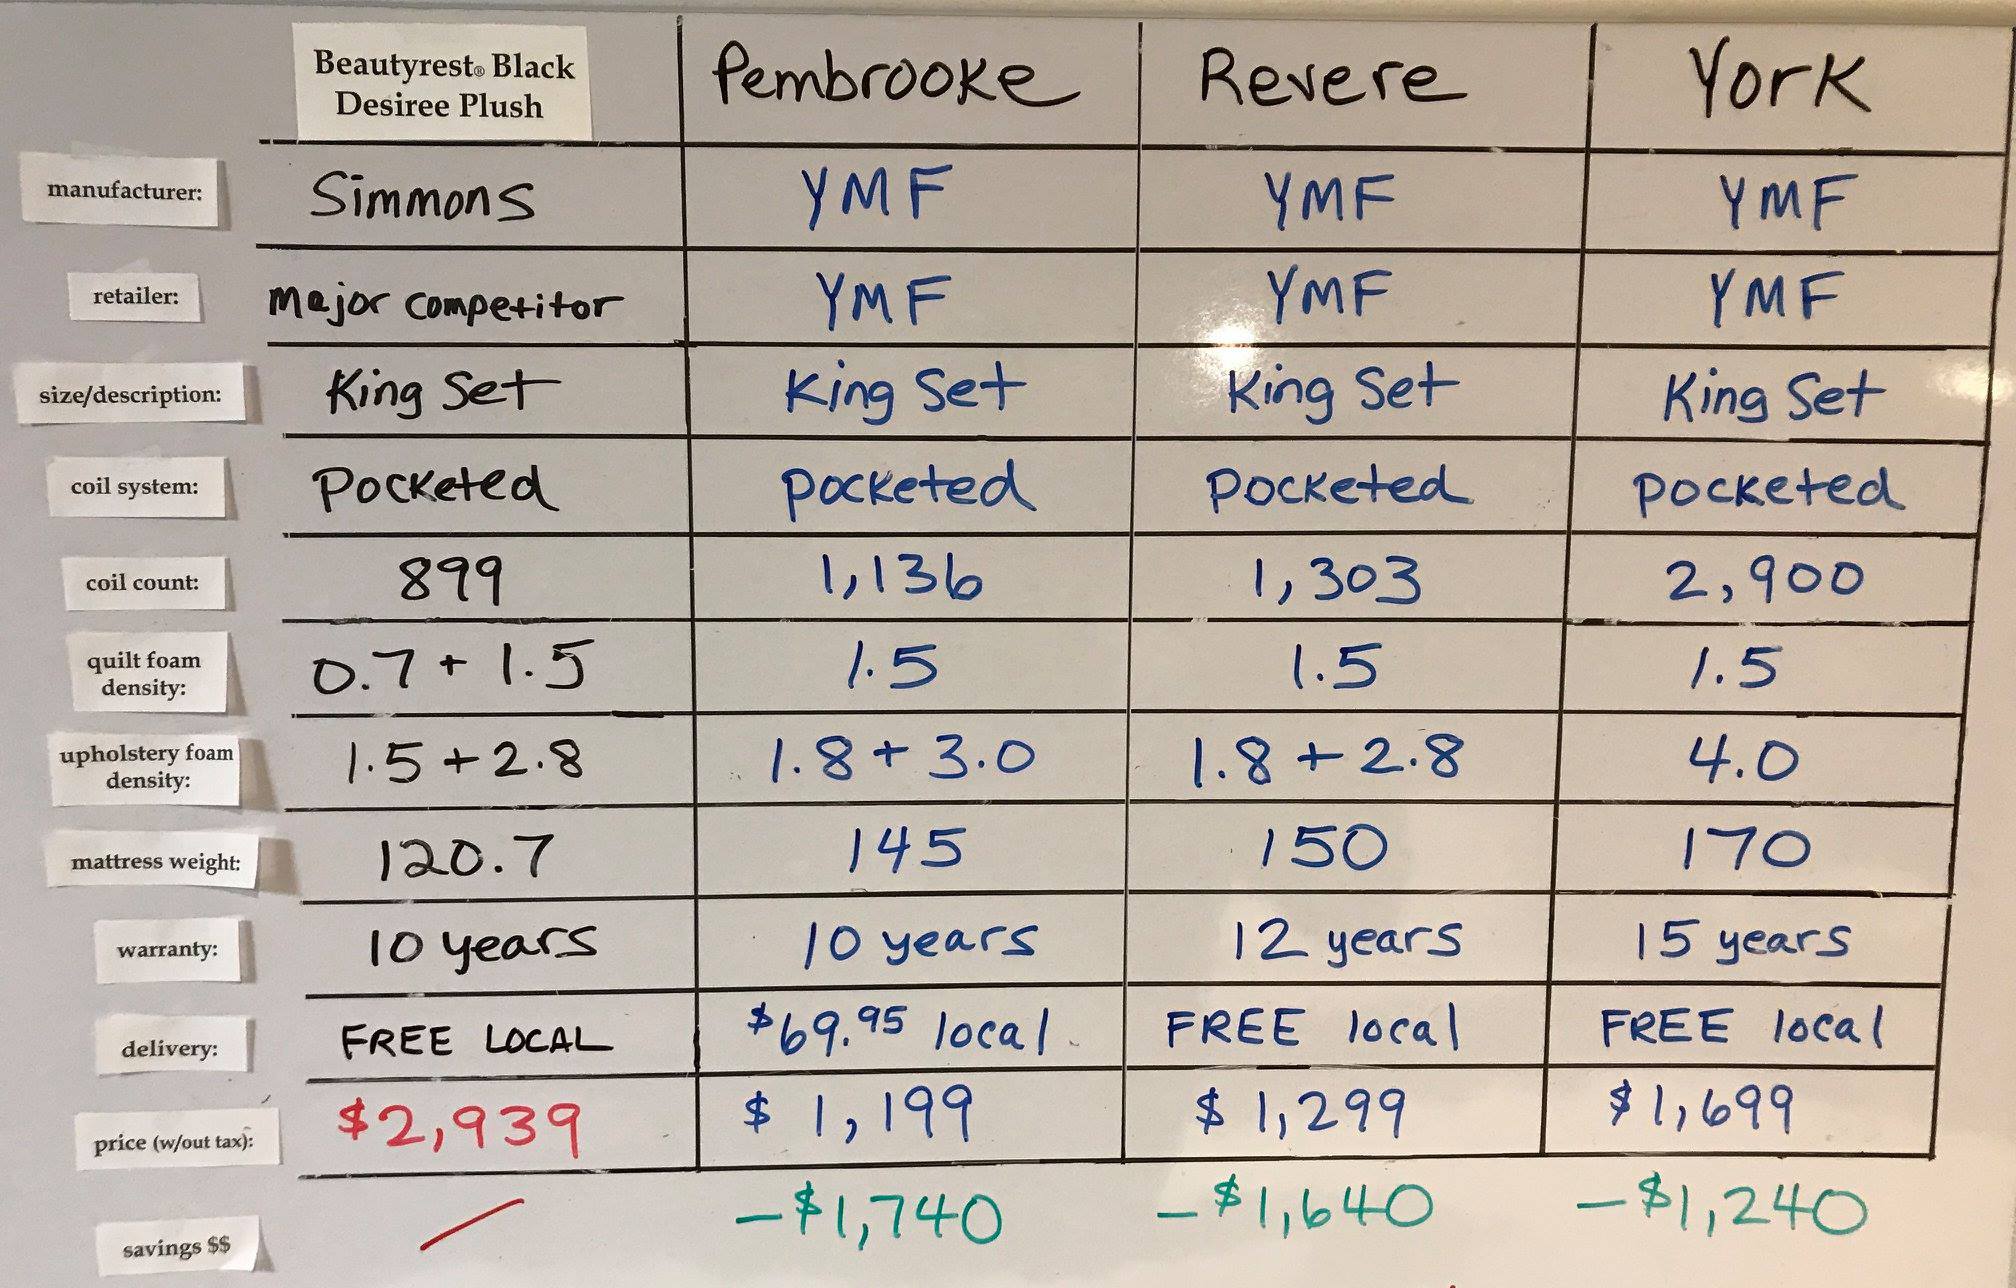 Beautyrest® Black
Desiree Plush
Pembrooke
Revere
York
manufacturer:
Simmons
YMF
YMF
YMF
retailer:
Major competitor
YMF
YMF
YMF
size/description:
King Set
King Set
King Set
King Set
coil system:
Pocketed
Pocketed
Pocketed
Pocketed
coil count:
899
1,136
1,303
2,900
quilt foam
density:
0.7 + 1.5
1.5
1.5
1.5
upholstery foam
density:
1.5 + 2.8
1.8 + 3.0
1.8 + 2.8
4.0
mattress weight:
120.7
145
150
170
warranty:
10 years
10 years
12 years
15 years
delivery:
FREE LOCAL
$69.95 local
FREE local
FREE local
price (w/out tax):
$2,939
$1,199
$1,299
$1,699
savings $$
-$1,740
-$1,640
-$1,240